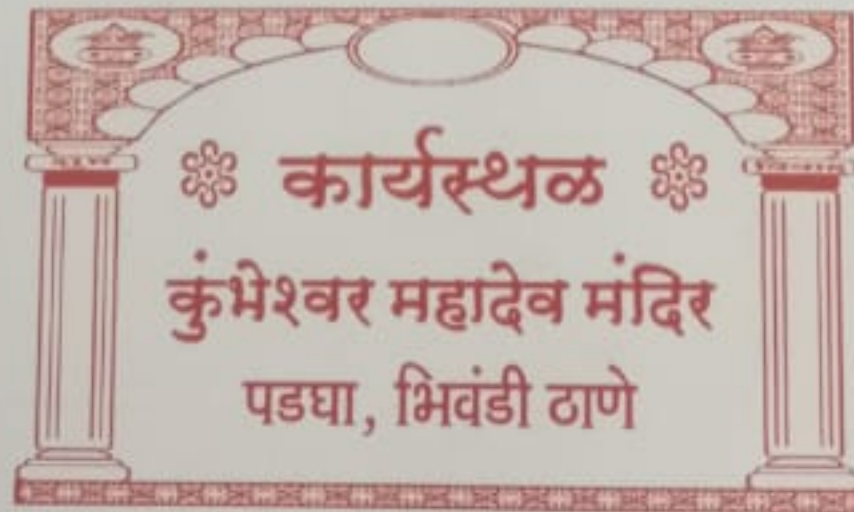 कार्यस्थळ
कुंभेश्वर महादेव मंदिर
पडघा, भिवंडी ठाणे